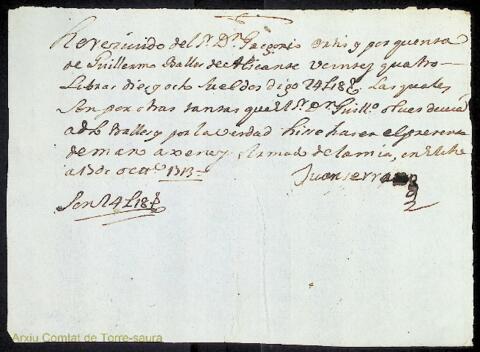 He rezivido del Sr. Dn. Gregorio Ortis y por quenta
de Guillermo Balles de Alicante veinte y quatro
Libras diez y ocho sueldos digo 24L18s Las quales
son por otras tantas que el Sr. Dn. Guillo.
a Balles y por la verdad hise haser el presente
de mano axena y firmado de la mia, en Elche
a 13 de octte. 1713=
Juan serrano
Son 24L18s
Arxiu Comtat de Torre-saura